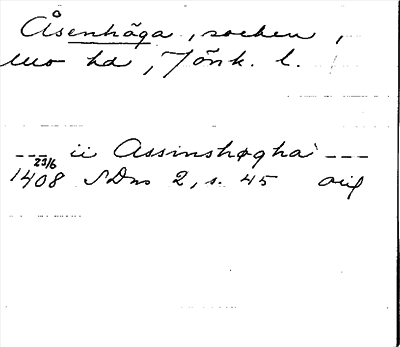 Åsenhöga, socken,
Mo hd, Jönk. l.
--- ii Assinshøgha ---
23/6
1408 SDns 2, s. 45 orig